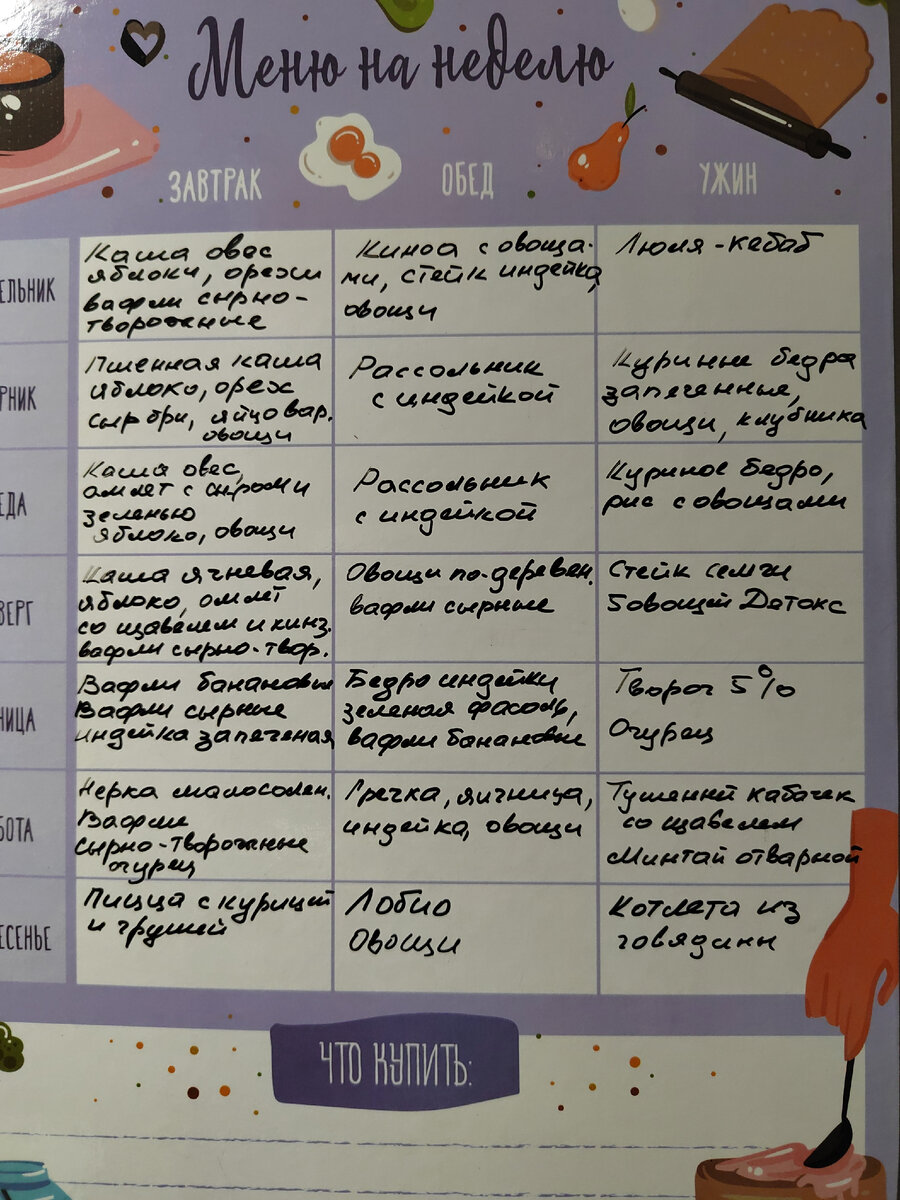 Меню на неделю
ЗАВТРАК
ОБЕД
УЖИН
ЕЛЬНИК
Каша овес
яблоки, орехи
вафли сырно-
творожные
Киноа с овоща-
ми, стейк индейка,
овощи
Люля-кебаб
РНИК
Пшенная каша
яблоко, орех
сыр бри, яйцо вар.
овощи
Рассольник
с индейкой
Куринные бедра
запеченные,
овощи, клубника
ЕДА
Каша овес,
омлет с сыром и
зеленью
яблоко, овощи
Рассольник
с индейкой
Куриное бедро,
рис с овощами
ВЕРГ
Каша ячневая,
яблоко, омлет
со щавелем и кинз.
вафли сырно-твор.
Овощи по-деревен.
вафли сырные
Стейк семги
5овощей Детокс
НИЦА
Вафли банановые
Вафли сырные
индейка запеченая
Бедро индейки
зеленая фасоль,
вафли банановые
Творог 5%
Огурец
БОТА
Нерка малосолен.
Вафли
сырно-творожные
огурец
Гречка, яичница,
индейка, овощи
Тушеный кабачек
со щавелем
Минтай отварной
ЕСЕНЬЕ
Пицца с курицей
и грушей
Лобио
Овощи
Котлета из
говядины
ЧТО КУПИТЬ: